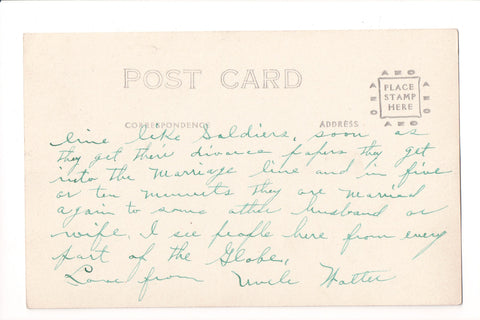 POST CARD
AZO
AZO PLACE STAMP HERE AZO
AZO
CORRESPONDENCE ADDRESS
line like Soldiers, soon as
they get there divorce papers they get
into the Marriage line and in five
or ten minuits they are married
again to some other husband or
wife, I see people here from every
part of the Globe,
Love from Uncle Walter